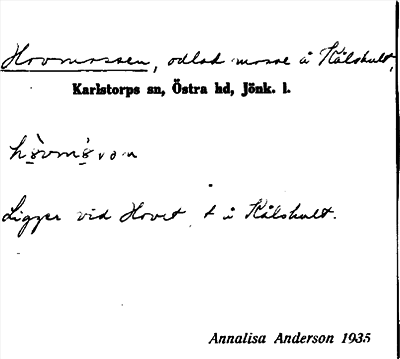 Hovmossen, odlad mosse å Kålshult,
Karlstorps sn, Östra hd, Jönk. l.
Ligger vid Hovet, t å Kålshult.
Annalisa Anderson 1935